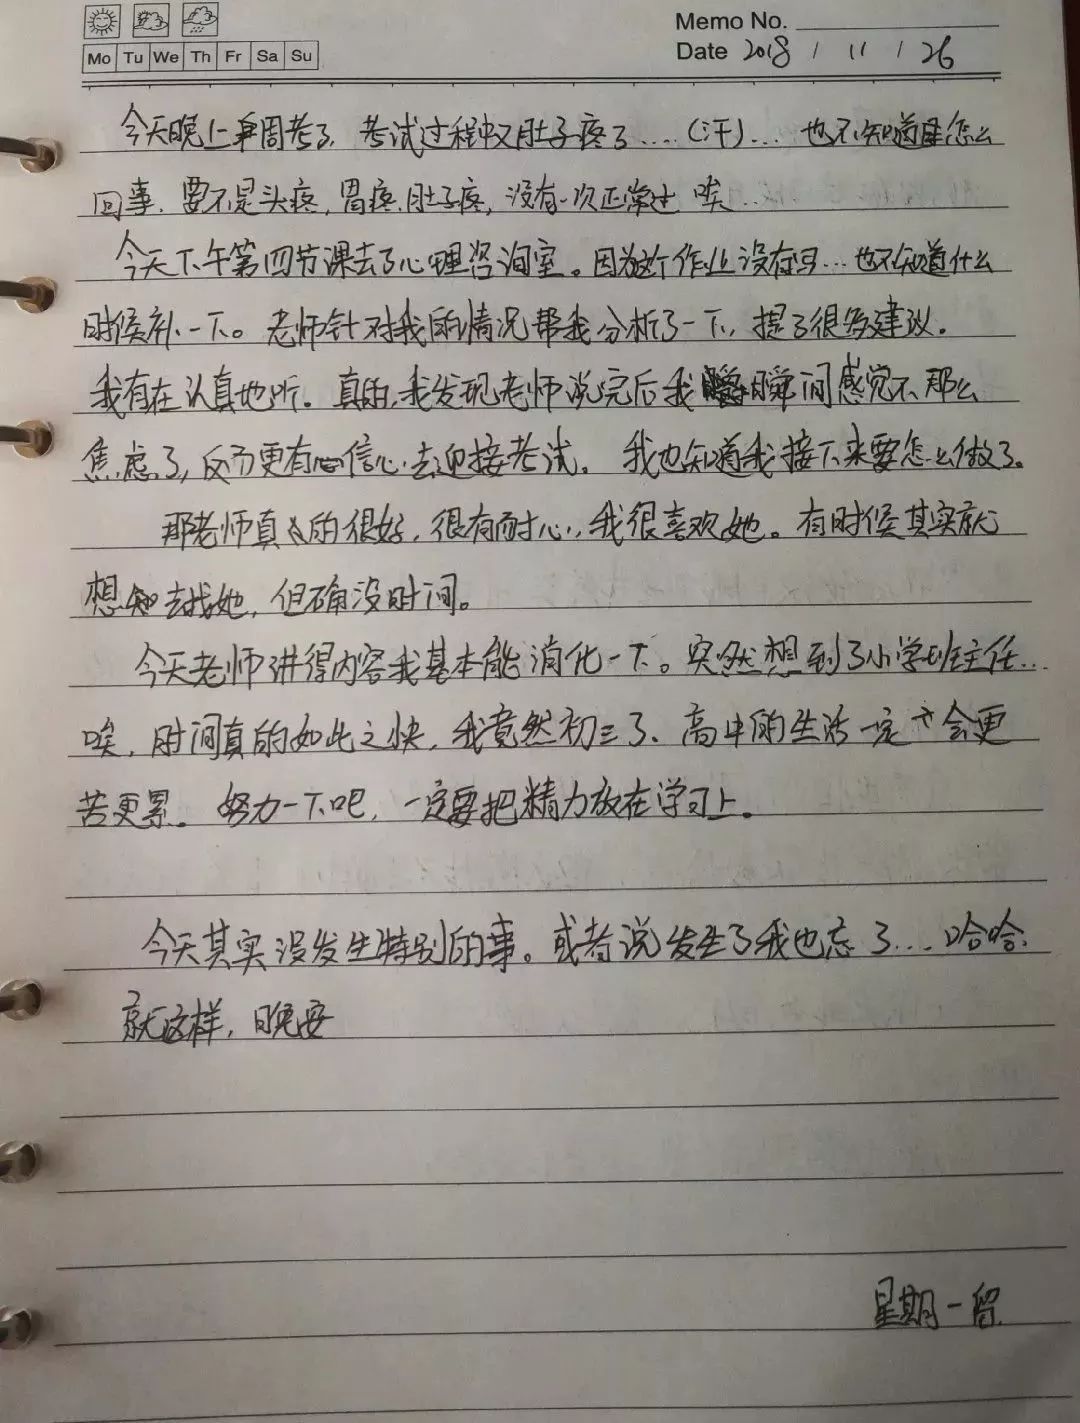 Memo No.
Mo Tu We Th Fr Sa Su
Date 2018 / 11 / 26
今天晚上单周考了，考试过程中又肚子疼了....(汗)... 也不知道是怎么
回事，要不是头疼，胃疼，肚子疼，没有一次正常过 唉...
今天下午第四节课去了心理咨询室。因为这个作业没有写...也不知道什么
时候补一下。老师针对我的情况帮我分析了一下，提了很多建议。
我有在认真地听。真的，我发现老师说完后我瞬间感觉不那么
焦虑了，反而更有信心去迎接考试。我也知道我接下来要怎么做了。
那老师真的很好，很有耐心，我很喜欢她。有时候其实就
想去找她，但确没时间。
今天老师讲得内容我基本能消化一下。突然想到了小学班主任...
唉，时间真的如此之快，我竟然初三了、高中的生活一定会更
苦更累。努力一下吧，一定要把精力放在学习上。
今天其实没发生特别的事。或者说发生了我也忘了....哈哈.
就这样，晚安
星期一留.